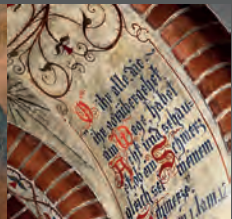 O ihr alle die
ihr vorübergehet
am Wege, habet
Acht und schau-
et ob ein Schmerz
gleich sei meinem
Schmerze.